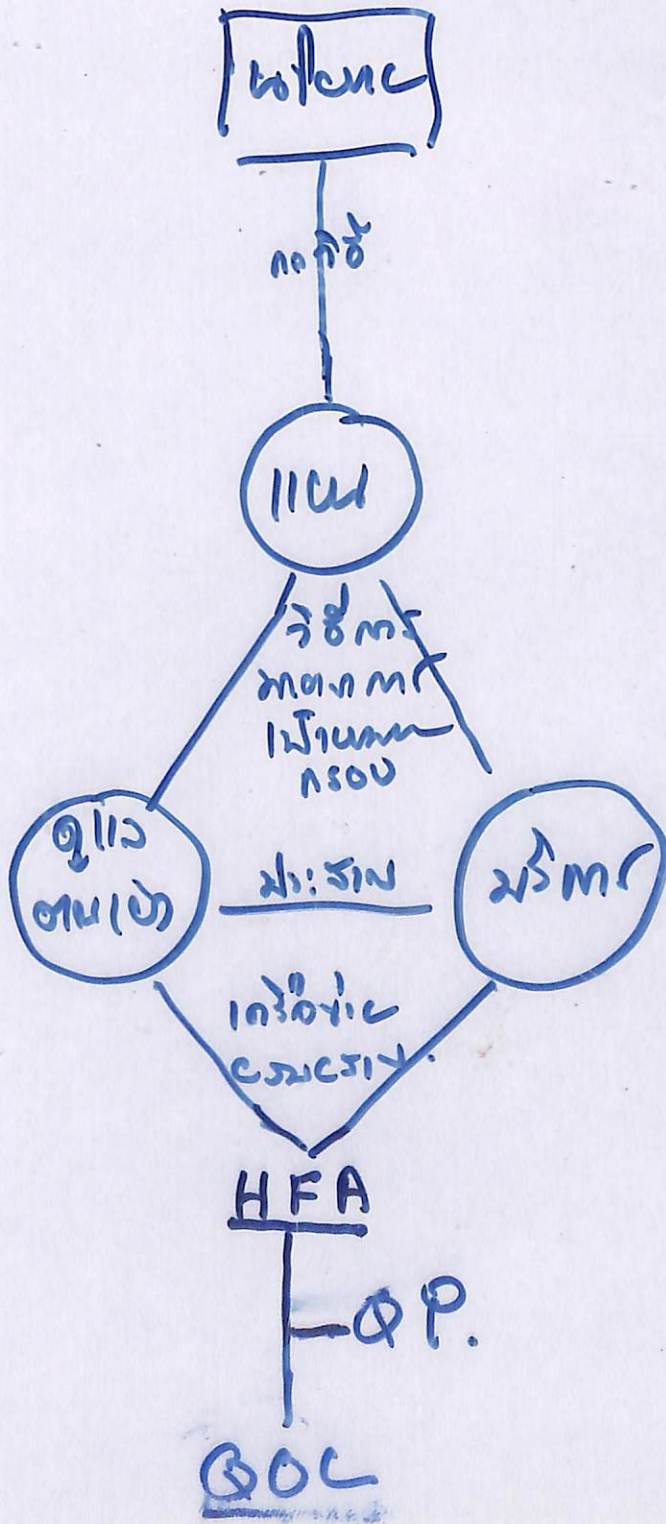 นโยบาย
กลวิธี
แผน
วิธีการ
มาตรการ
เป้าหมาย
กรอบ
ดูแล
ตนเอง
ประสาน
บริการ
เครือข่าย
HFA
QP.
QOL